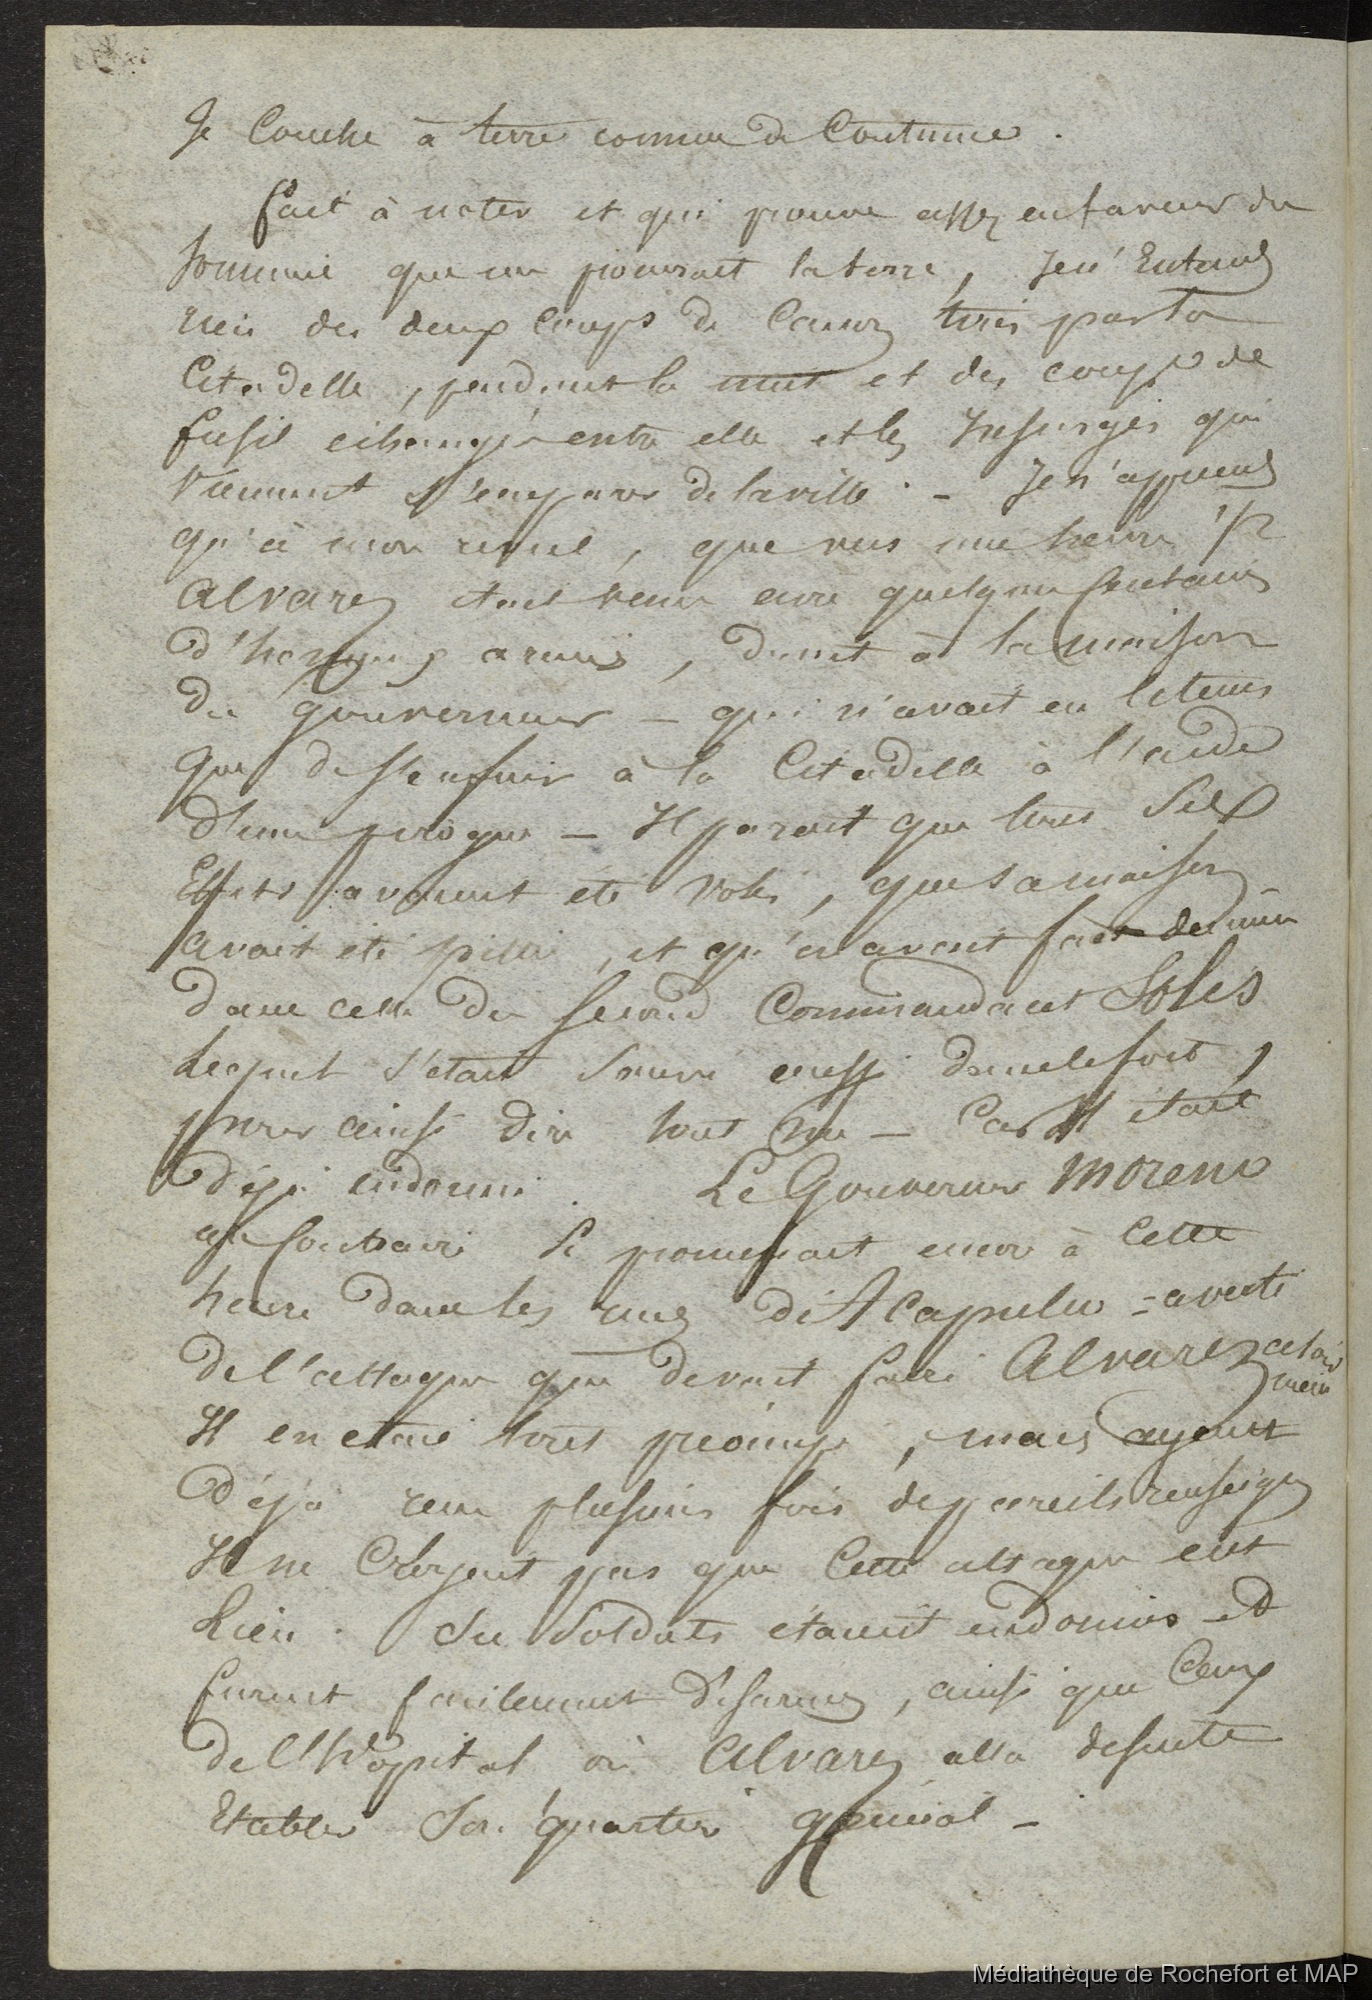 Je Couche à terre comme de Coutume.
Fait à noter et qui prouve assez en faveur du
Sommeil que me procurait la terre, Je n'Entends
rien des deux Coups de Canon tirés par la
Citadelle, pendant la nuit et des coups de
fusil echangés entre elle et les Insurgés qui
viennent s'emparer de la ville. - Je n'apprends
qu'à mon reveil, que vers une heure 1/2
Alvarez était venu avec quelques Centaines
d'hommes armés, droit à la maison
du gouverneur - qui n'avait eu le tems
que de s'enfuir à la Citadelle à l'aide
d'une pirogue - Il parait que tous Ses
Effets avaient été volés, que sa maison
avait été pillée, et qu'on avait fait de même
dans celle du Second Commandant Solis
Lequel s'était sauvé aussi dans le fort,
pour ainsi dire tout nu - Car Il était
déjà endormi. Le Gouverneur Moreno
au Contraire Se promenait encore à Cette
heure dans les rues d'Acapulco - averti
de l'attaque que devait faire Alvarez
Il en etait tout , mais ayant
déjà recu plusieurs fois de pareils renseigts
Il ne pas que Cette attaque eut
Lieu. Ses Soldats étaient endormis et
furent facilement désarmés, ainsi que Ceux
de l'Hopital où Alvarez alla desuite
Etablir Son quartier général -
Médiathèque de Rochefort et MAP